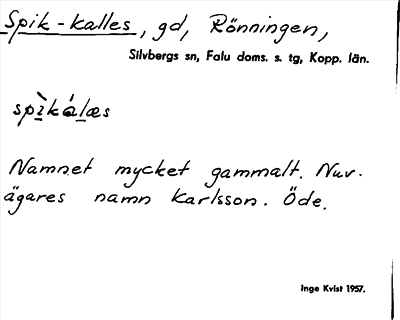 Spik-kalles, gd, Rönningen,
Silvbergs sn, Falu doms. s. tg, Kopp. län.
spìkálæs
Namnet mycket gammalt. Nuv.
ägares namn Karlsson. Öde.
Inge Kvist 1957.